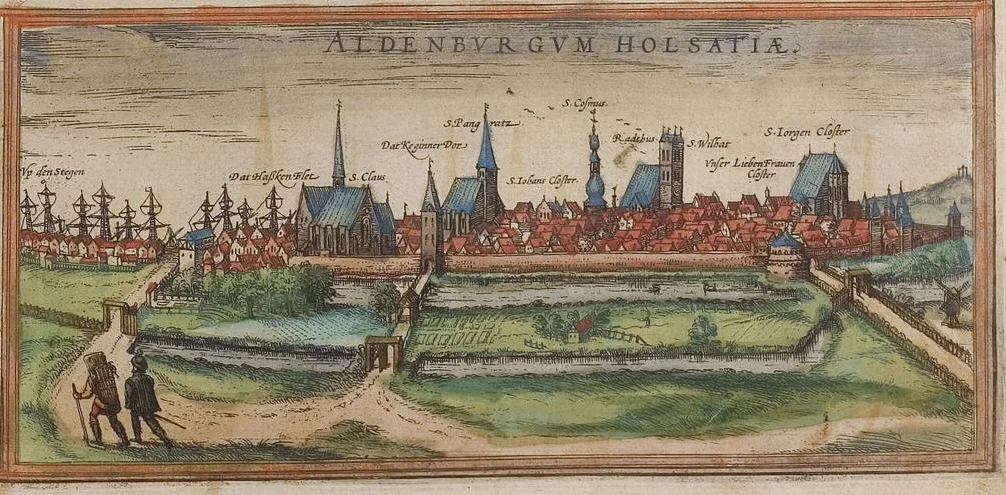 ALDENBVRGVM HOLSATIÆ.
S. Cosmus.
S. Pancratz
Radthus
S. Iorgen Closter
Dat Keginner Dor
S. Wilhat
Vp den Stegen
Dat Haßken Flet
S. Claus
S. Iohans Closter.
Vnser Lieben Frauen
Closter